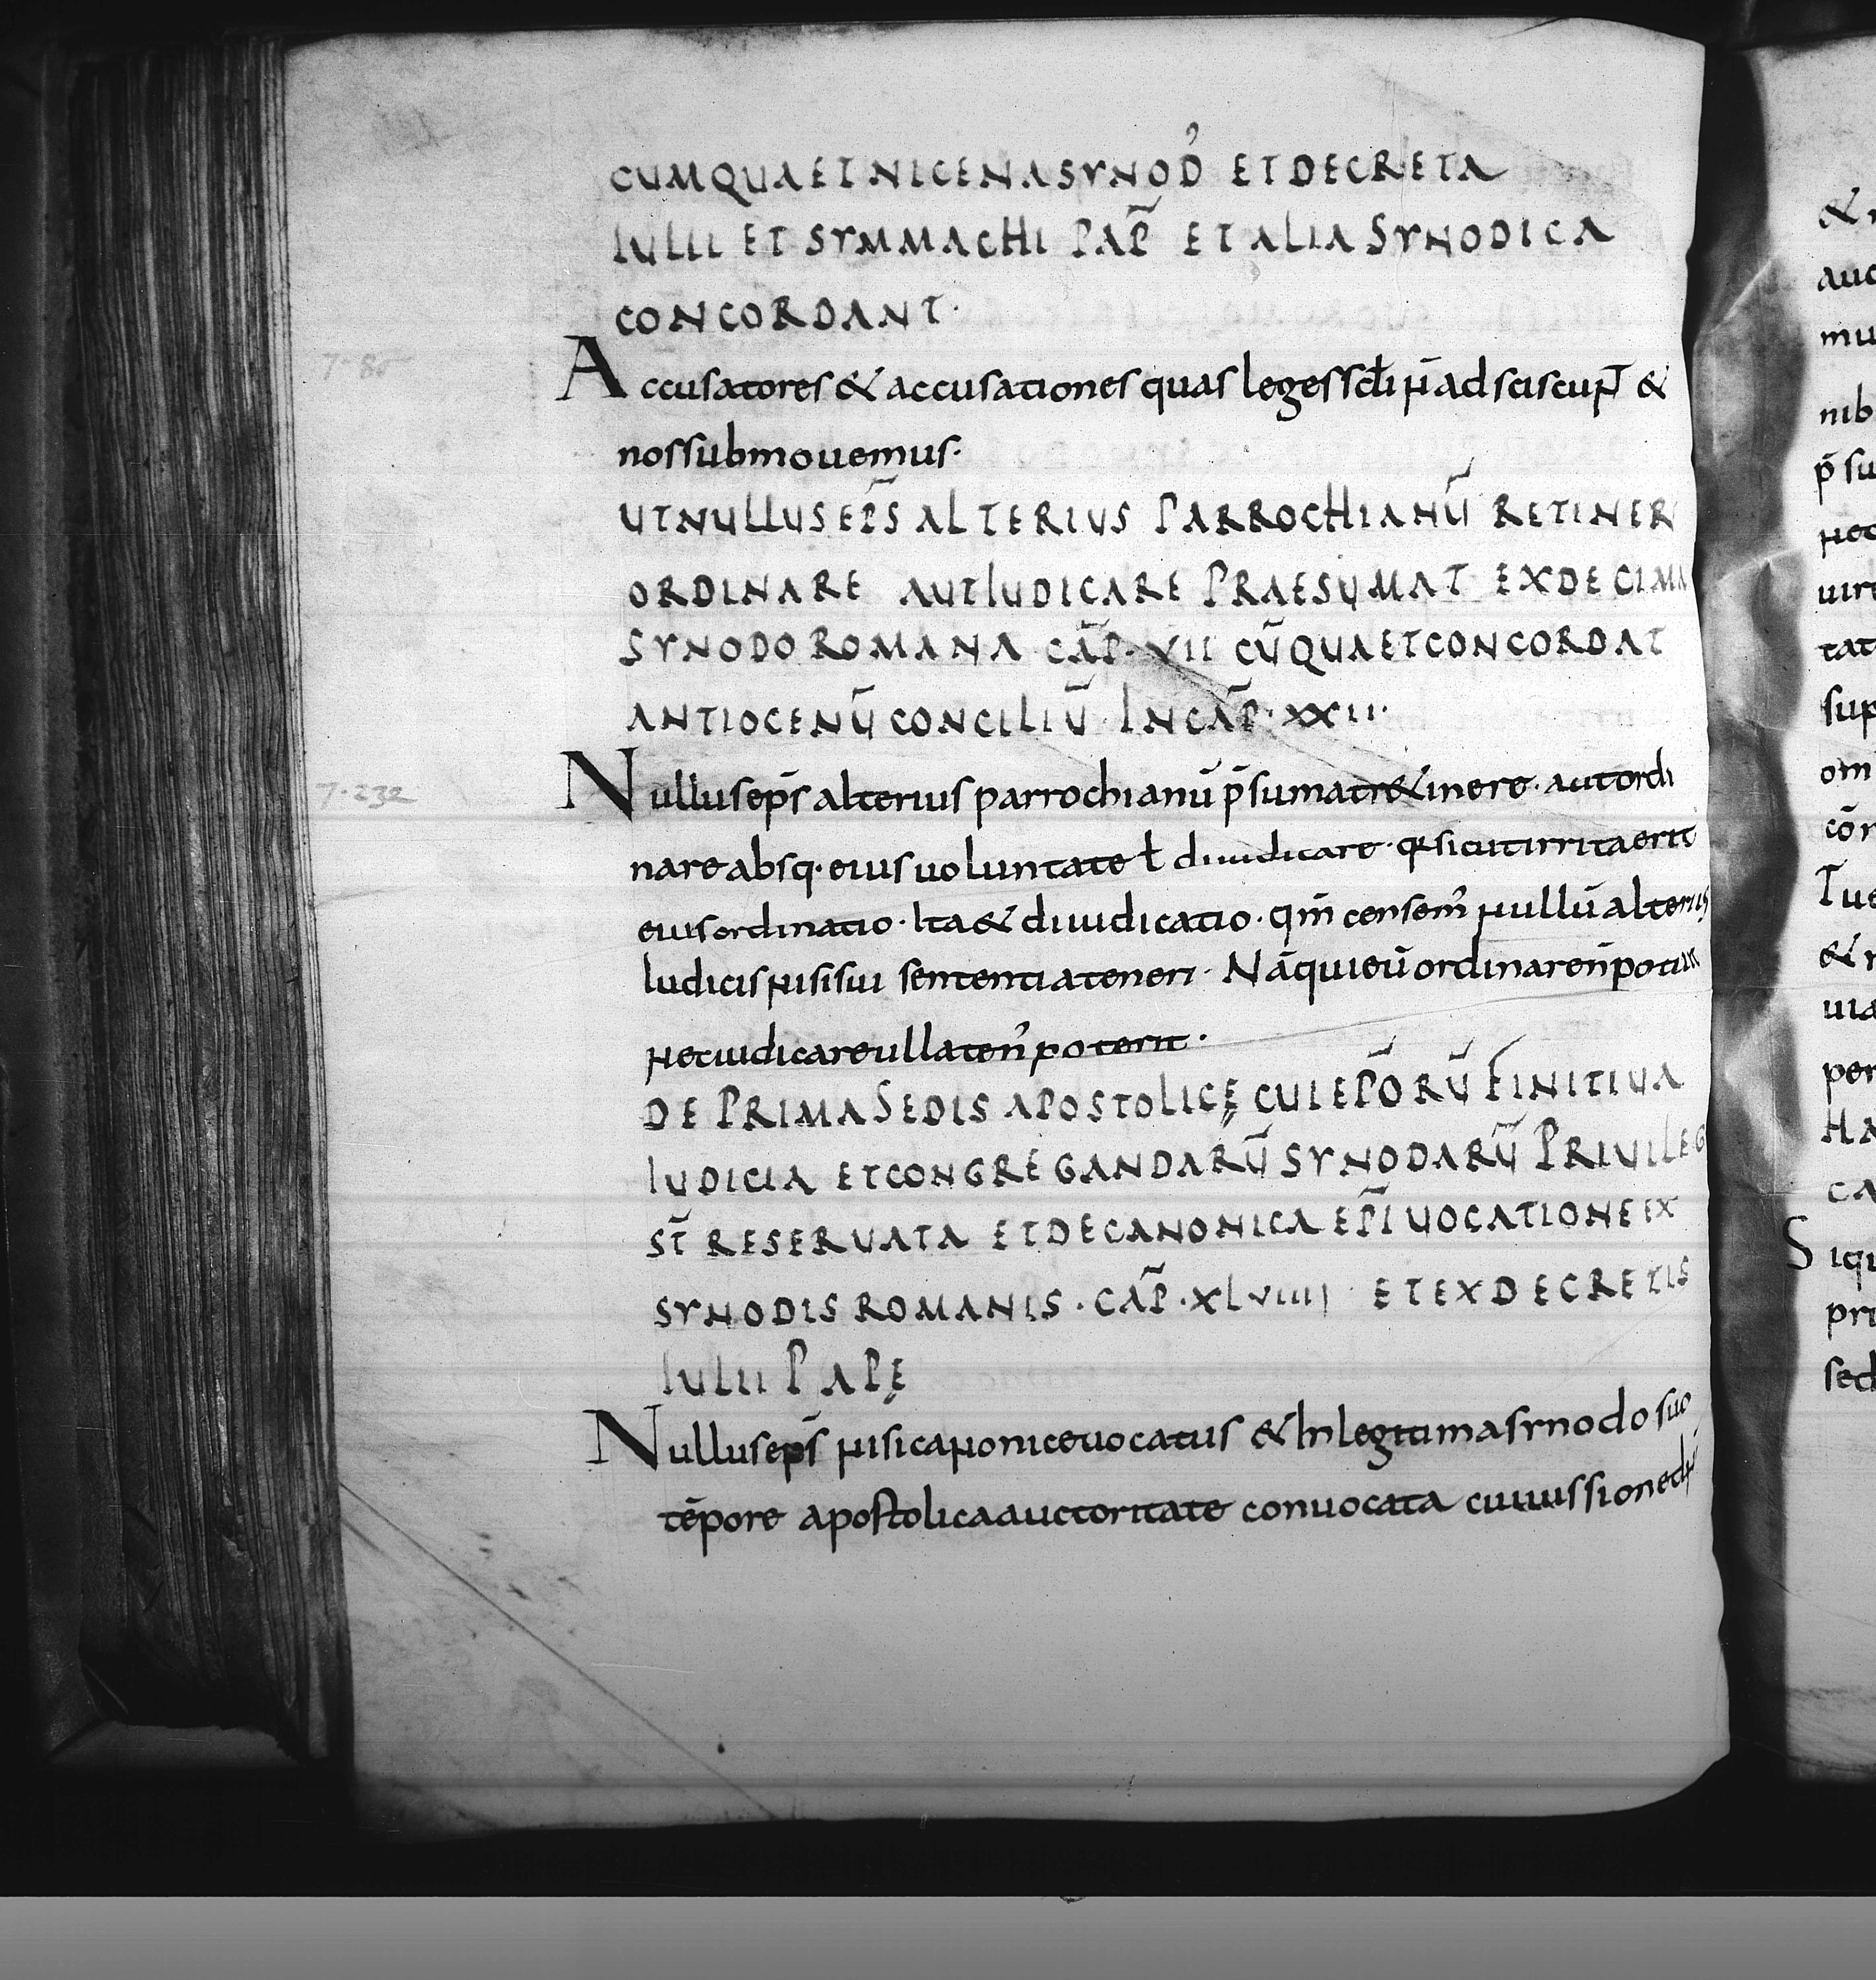 CUM QUA ET NICENA SYNOD̓ ET DECRETA
IULII ET SYMMACHI PAP̄ ET ALIA SYNODICA
CONCORDANT·
Accusatores & accusationes quas leges scłi n̄ adsciscunt̄ &
nos submouemus·
UT NULLUS EP̄S ALTERIUS PARROCHIANŪ RETINER
ORDINARE AUT IUDICARE PRAESUMAT EX DECIMA
SYNODO ROMANA CAP̄· VII CŪ QUA ET CONCORDAT
ANTIOCENŪ CONCILIŪ IN CAP̄· XXII·
Nullus ep̄s alterius parrochianū p̄sumat r&inere· aut ordi
nare absq· eius uoluntate ł diiudicare· q̶ sicut irrita erit
eius ordinatio· Ita & diiudicatio· qm̄ censem᾿ nullū alterius
Iudicis nisi sui sententia teneri· Nā qui eū ordinare n̄ potuit
nec iudicare ullaten᾿ poterit·
DE PRIMA SEDIS APOSTOLICĘ CUI EP̄ORŪ FINITIUA
IUDICIA ET CONGREGANDARŪ SYNODARŪ PRIUILEG
ST̄ RESERUATA ET DE CANONICA EP̄I UOCATIONE EX
SYNODIS ROMANIS· CAP̄· XLVIIII ET EX DECRETIS
IULII PAPĘ
Nullus ep̄s nisi canonice uocatus & In legitima synodo suo
tēpore apostolica auctoritate conuocata cui iussione
7·85
7·232